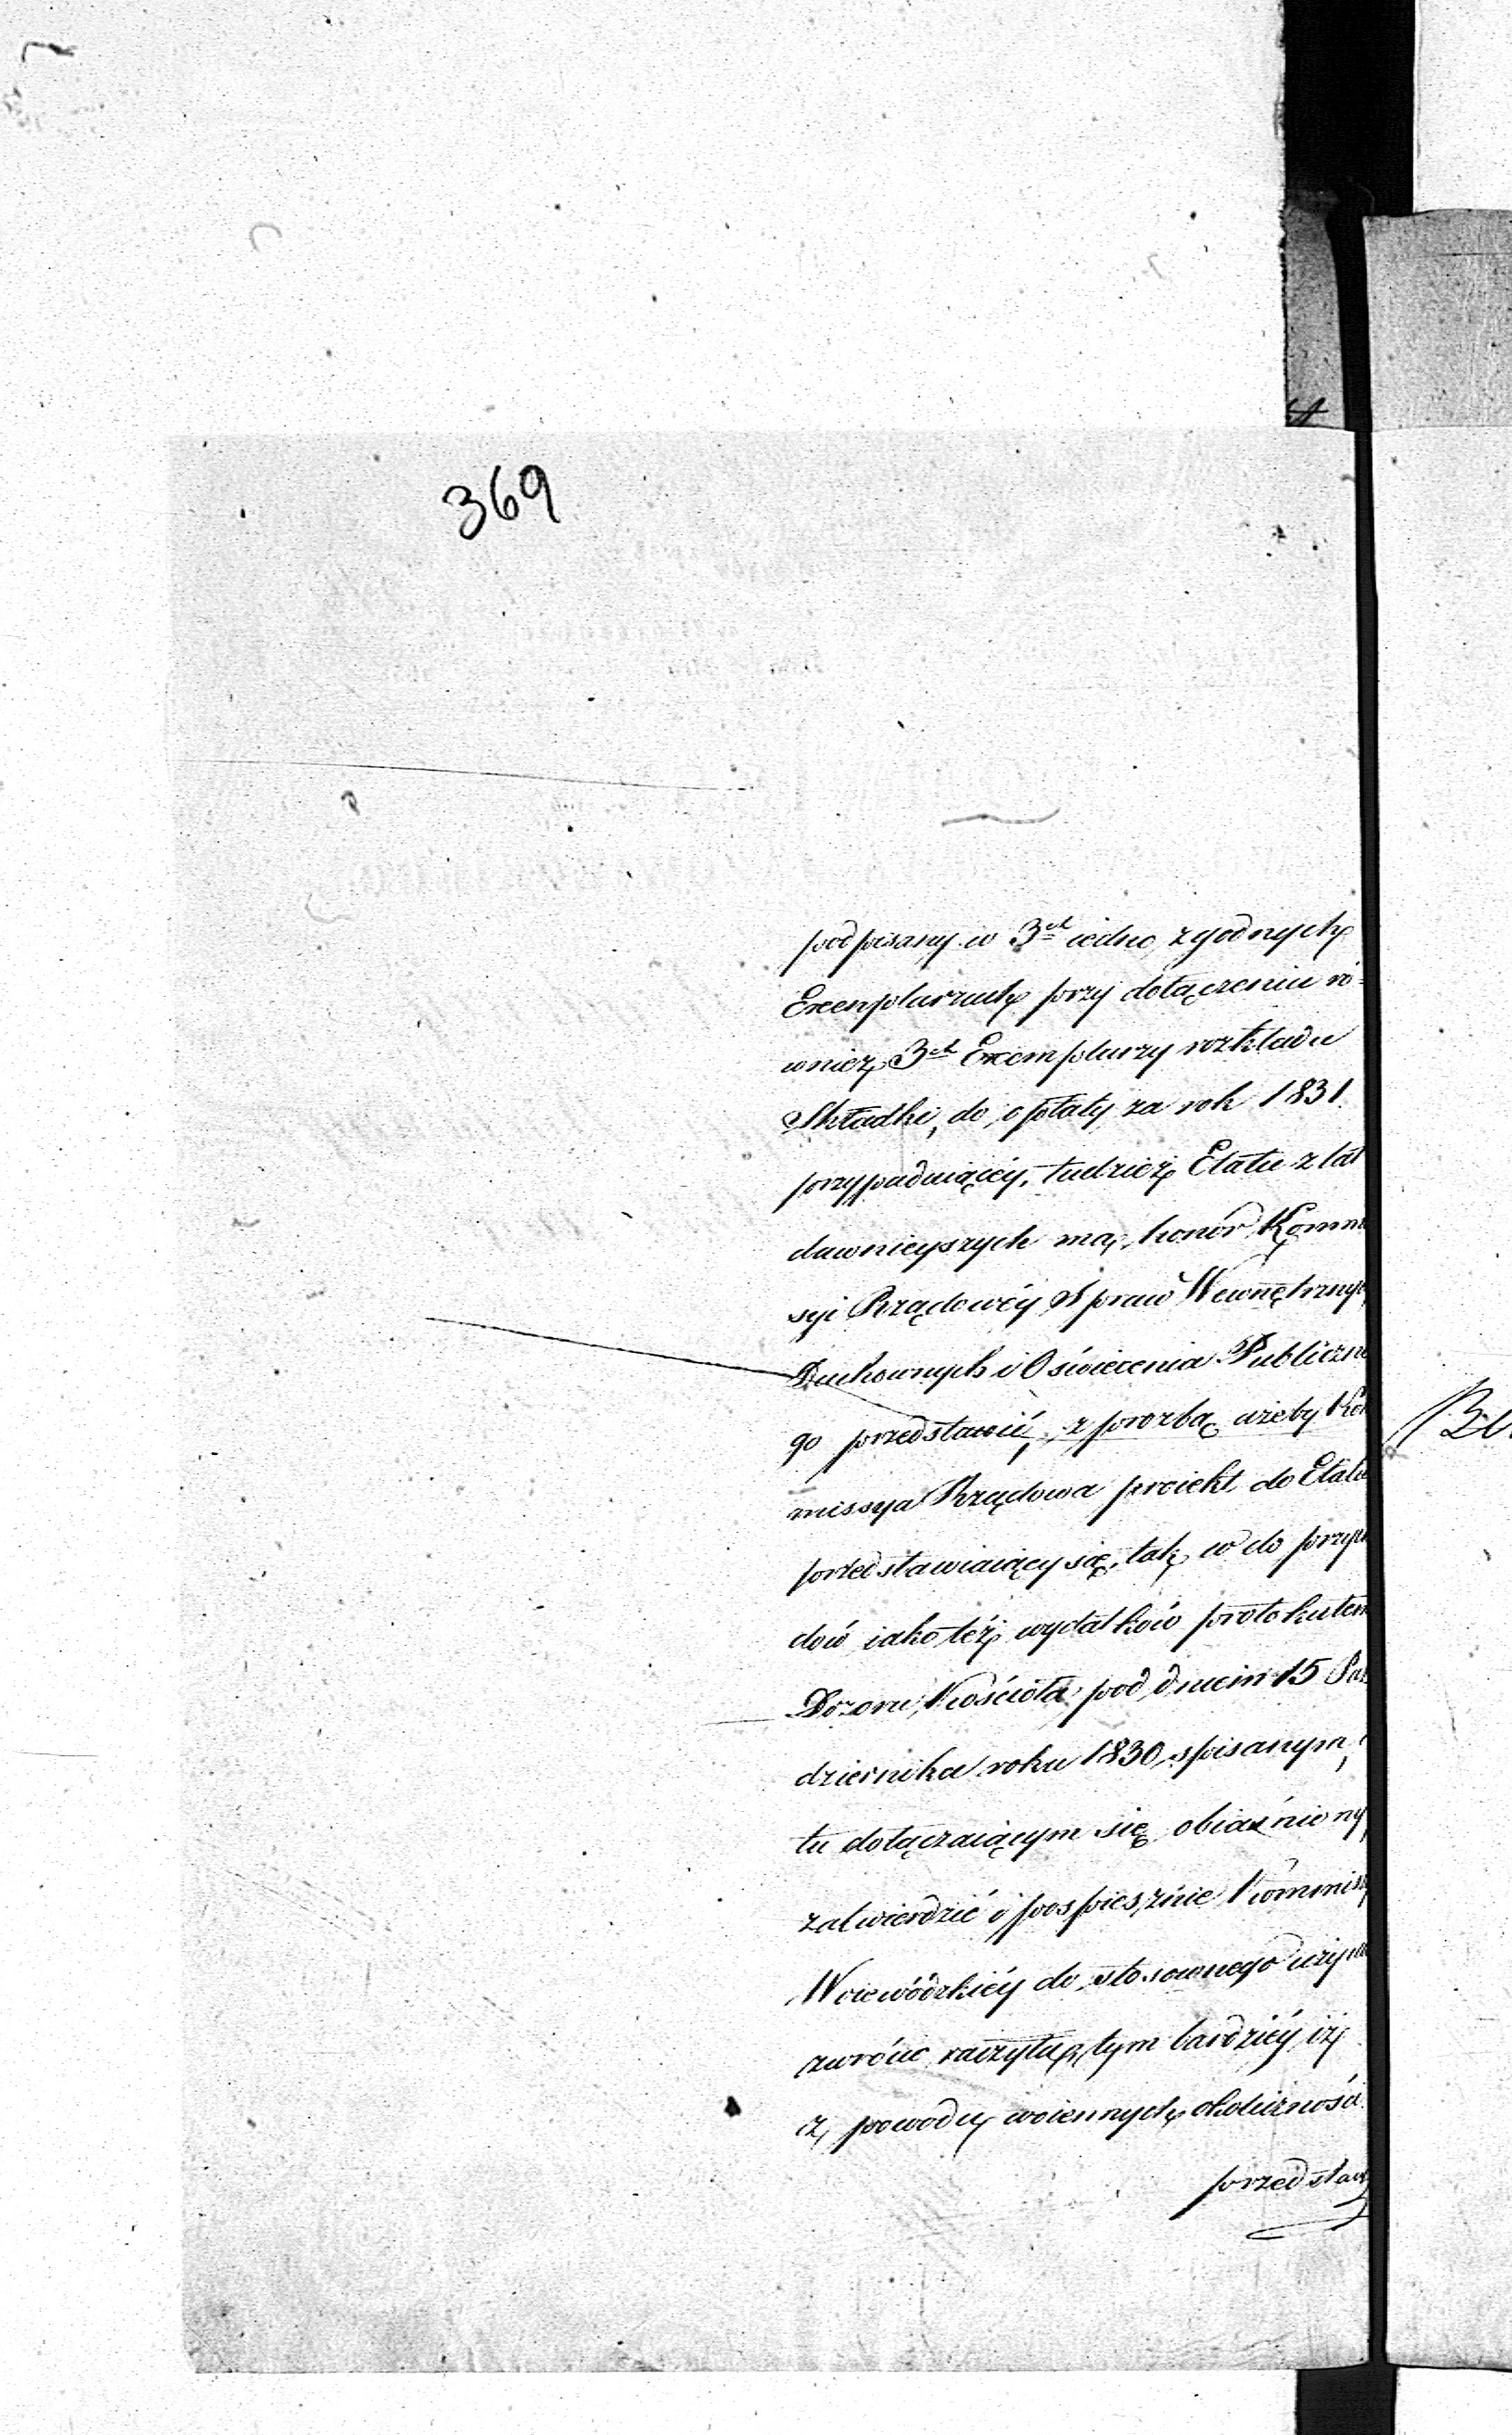 369
podpisany w 3ch iedno zgodnych
Exemplarzach przy dołączeniu ró=
wnież 3ch Exemplarzy rozkładu
Składki, do opłaty za rok 1831.
przypadaiącéy, tudzież Etatu z lat
dawnieyszych ma honor Komm
syi Rządowéy Spraw Wewnętrznyc
Duchownych i Oświecenia Publiczne
go przedstawić, z prozbą ażeby Kom
missya Rządowa proiekt do Etatu
przedstawiaiący się, tak co do przyc
dów iako też wydatków protokułem
Dozoru Kościoła pod dniem 15 Paź
dziernika roku 1830 spisanym,
tu dołączaiącym się obiaśniony
zatwierdzić i pospiesznie Kommiss
Woiewódzkiéy do stosownego użyc
zwrócić raczyła, tym bardziéy iż
z powodu woiennych okoliczności
przedstaw